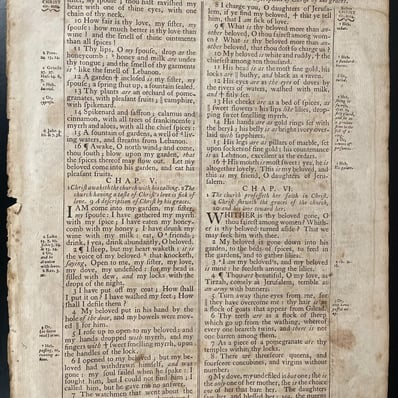 my spouse; thou hast ravished my
heart with one of thine eyes, with one
chain of thy neck.
10 How fair is thy love, my sister, my
spouse! how much better is thy love than
wine! and the smell of thine ointments
than all spices!
11 Thy lips, O my spouse, drop as the
honeycomb: honey and milk are under
thy tongue; and the smell of thy garments
is like the smell of Lebanon.
12 A garden inclosed is my sister, my
spouse; a spring shut up, a fountain sealed.
13 Thy plants are an orchard of pome-
granates, with pleasant fruits; camphire,
with spikenard,
14 Spikenard and saffron; calamus and
cinnamon, with all trees of frankincense;
myrrh and aloes, with all the chief spices:
15 A fountain of gardens, a well of liv-
ing waters, and streams from Lebanon.
16 ¶ Awake, O north wind; and come,
thou south; blow upon my garden, that
the spices thereof may flow out. Let my
beloved come into his garden, and eat his
pleasant fruits.
CHAP. V.
1 Christ awaketh the church with his calling. 2 The
church having a taste of Christ's love is sick of
love. 9 A description of Christ by his graces.
I AM come into my garden, my sister,
my spouse: I have gathered my myrrh
with my spice; I have eaten my honey-
comb with my honey; I have drunk my
wine with my milk: eat, O friends;
drink, yea, drink abundantly, O beloved.
2 ¶ I sleep, but my heart waketh: it is
the voice of my beloved that knocketh,
saying, Open to me, my sister, my love,
my dove, my undefiled: for my head is
filled with dew, and my locks with the
drops of the night.
3 I have put off my coat; how shall
I put it on? I have washed my feet; how
shall I defile them?
4 My beloved put in his hand by the
hole of the door, and my bowels were mov-
ed for him.
5 I rose up to open to my beloved; and
my hands dropped with myrrh, and my
fingers with sweet smelling myrrh, upon
the handles of the lock.
6 I opened to my beloved; but my be-
loved had withdrawn himself, and was
gone: my soul failed when he spake: I
sought him, but I could not find him; I
called him, but he gave me no answer.
7 The watchmen that went about the
8 I charge you, O daughters of Jerusa-
lem, if ye find my beloved, that ye tell
him, that I am sick of love.
9 ¶ What is thy beloved more than an-
other beloved, O thou fairest among
women? what is thy beloved more than
another beloved, that thou dost so charge us?
10 My beloved is white and ruddy, the
chiefest among ten thousand.
11 His head is as the most fine gold, his
locks are bushy, and black as a raven.
12 His eyes are as the eyes of doves by
the rivers of waters, washed with milk,
and fitly set.
13 His cheeks are as a bed of spices, as
sweet flowers: his lips like lilies, drop-
ping sweet smelling myrrh.
14 His hands are as gold rings set with
the beryl; his belly is as bright ivory over-
laid with sapphires.
15 His legs are as pillars of marble, set
upon sockets of fine gold: his countenance
is as Lebanon, excellent as the cedars.
16 His mouth is most sweet; yea, he is
altogether lovely. This is my beloved, and
this is my friend, O daughters of Jeru-
salem.
CHAP. VI.
1 The church professeth her faith in Christ.
4 Christ sheweth the graces of the church,
10 and his love toward her.
WHITHER is thy beloved gone, O
thou fairest among women? Whith-
er is thy beloved turned aside? That we
may seek him with thee.
2 My beloved is gone down into his
garden, to the beds of spices, to feed in
the gardens, and to gather lilies.
3 I am my beloved's, and my beloved
is mine: he feedeth among the lilies.
4 ¶ Thou art beautiful, O my love, as
Tirzah, comely as Jerusalem, terrible as
an army with banners.
5 Turn away thine eyes from me, for
they have overcome me: thy hair is as
a flock of goats that appear from Gilead.
6 Thy teeth are as a flock of sheep
which go up from the washing, whereof
every one beareth twins, and there is not
one barren among them.
7 As a piece of a pomegranate are thy
temples within thy locks.
8 There are threescore queens, and
fourscore concubines, and virgins without
number.
9 My dove, my undefiled is but one; she is
the only one of her mother, she is the choice
one of her that bare her. The daughters
saw her, and blessed her; yea, the queens